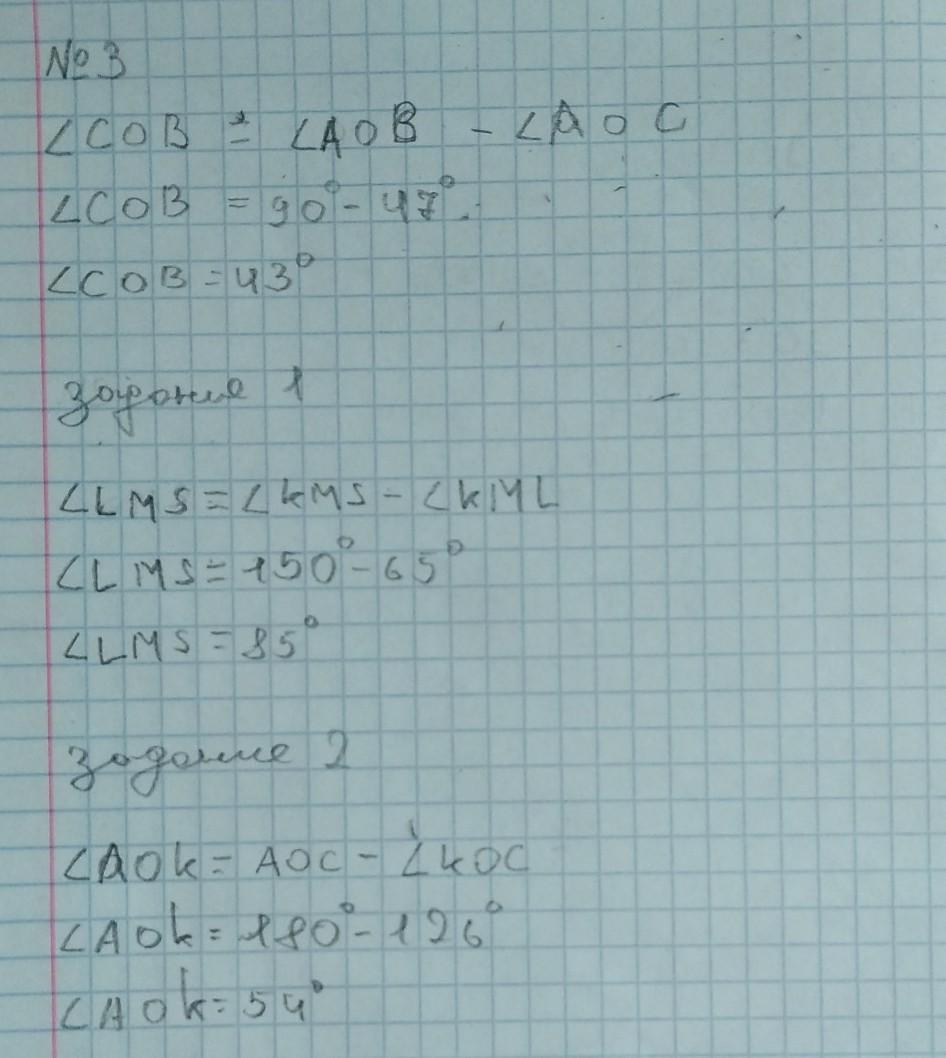 № 3
∠COB = ∠AOB - ∠AOC
∠COB = 90° - 47°.
∠COB = 43°
Задание 1
∠LMS = ∠KMS - ∠KML
∠LMS = 150° - 65°
∠LMS = 85°
Задание 2
∠AOK = AOC - ∠KOC
∠AOK = 180° - 126°
∠AOK = 54°